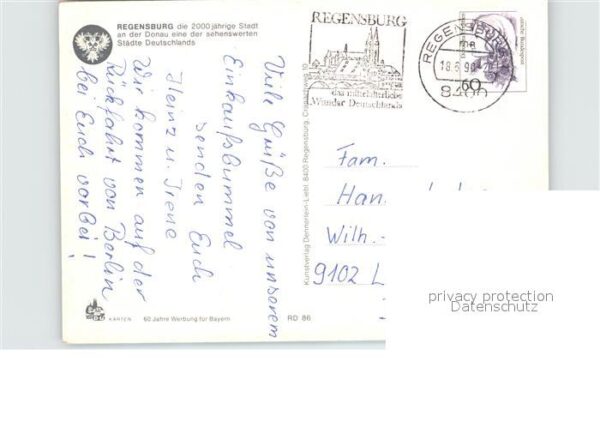 REGENSBURG die 2000jährige Stadt
an der Donau eine der sehenswerten
Städte Deutschlands
Viele Grüße von unserem
Einkaufsbummel
senden Euch
Heinz u. Irene
Wir kommen auf der
Rückfahrt von Berlin
bei Euch vorbei!
KARTEN
60 Jahre Werbung für Bayern
RD 86
Kunstverlag Dennerlein-Liebl, 8400 Regensburg
REGENSBURG
das mittelalterliche
Wunder Deutschlands
REGENSBURG
8400
60
Fam.
Han
Wilh.-
9102 L
privacy protection
Datenschutz